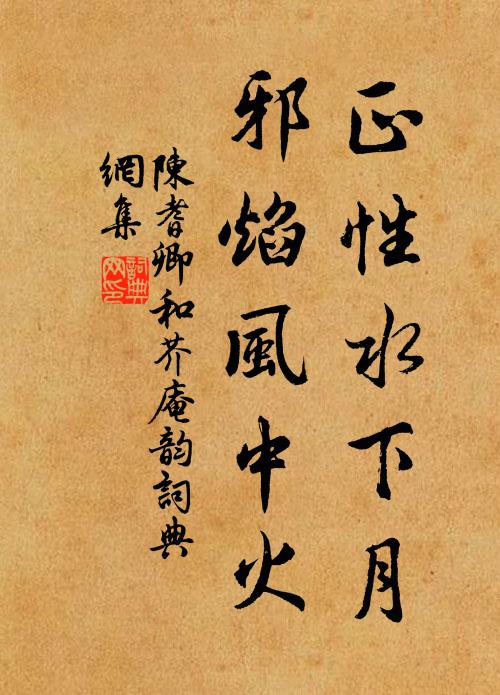 正性水下月
邪焰風中火
陳耆卿和芥庵韵詞典
網集
詞典网印